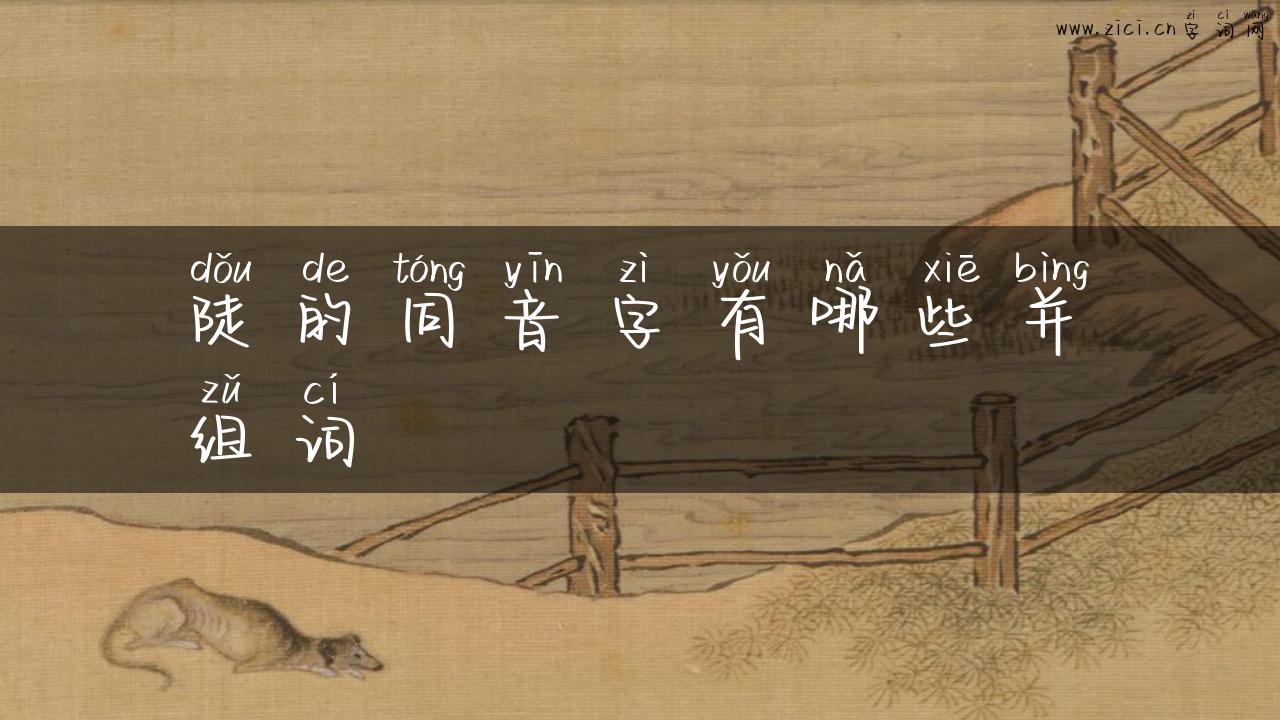 zì cí wǎng
www.zici.cn 字词网
dǒu de tóng yīn zì yǒu nǎ xiē bìng
陡的同音字有哪些并
zǔ cí
组词